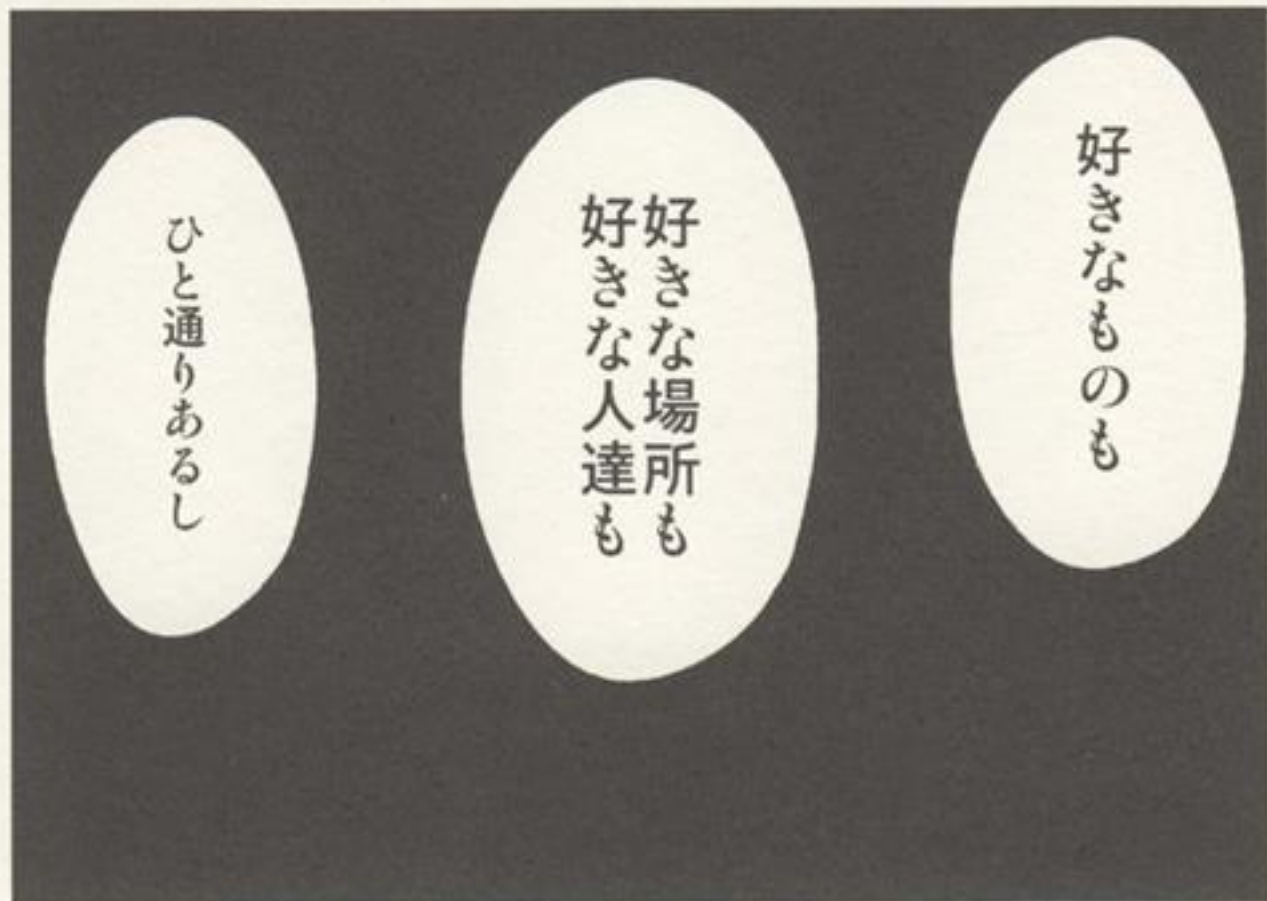 好きなものも
好きな場所も
好きな人達も
ひと通りあるし